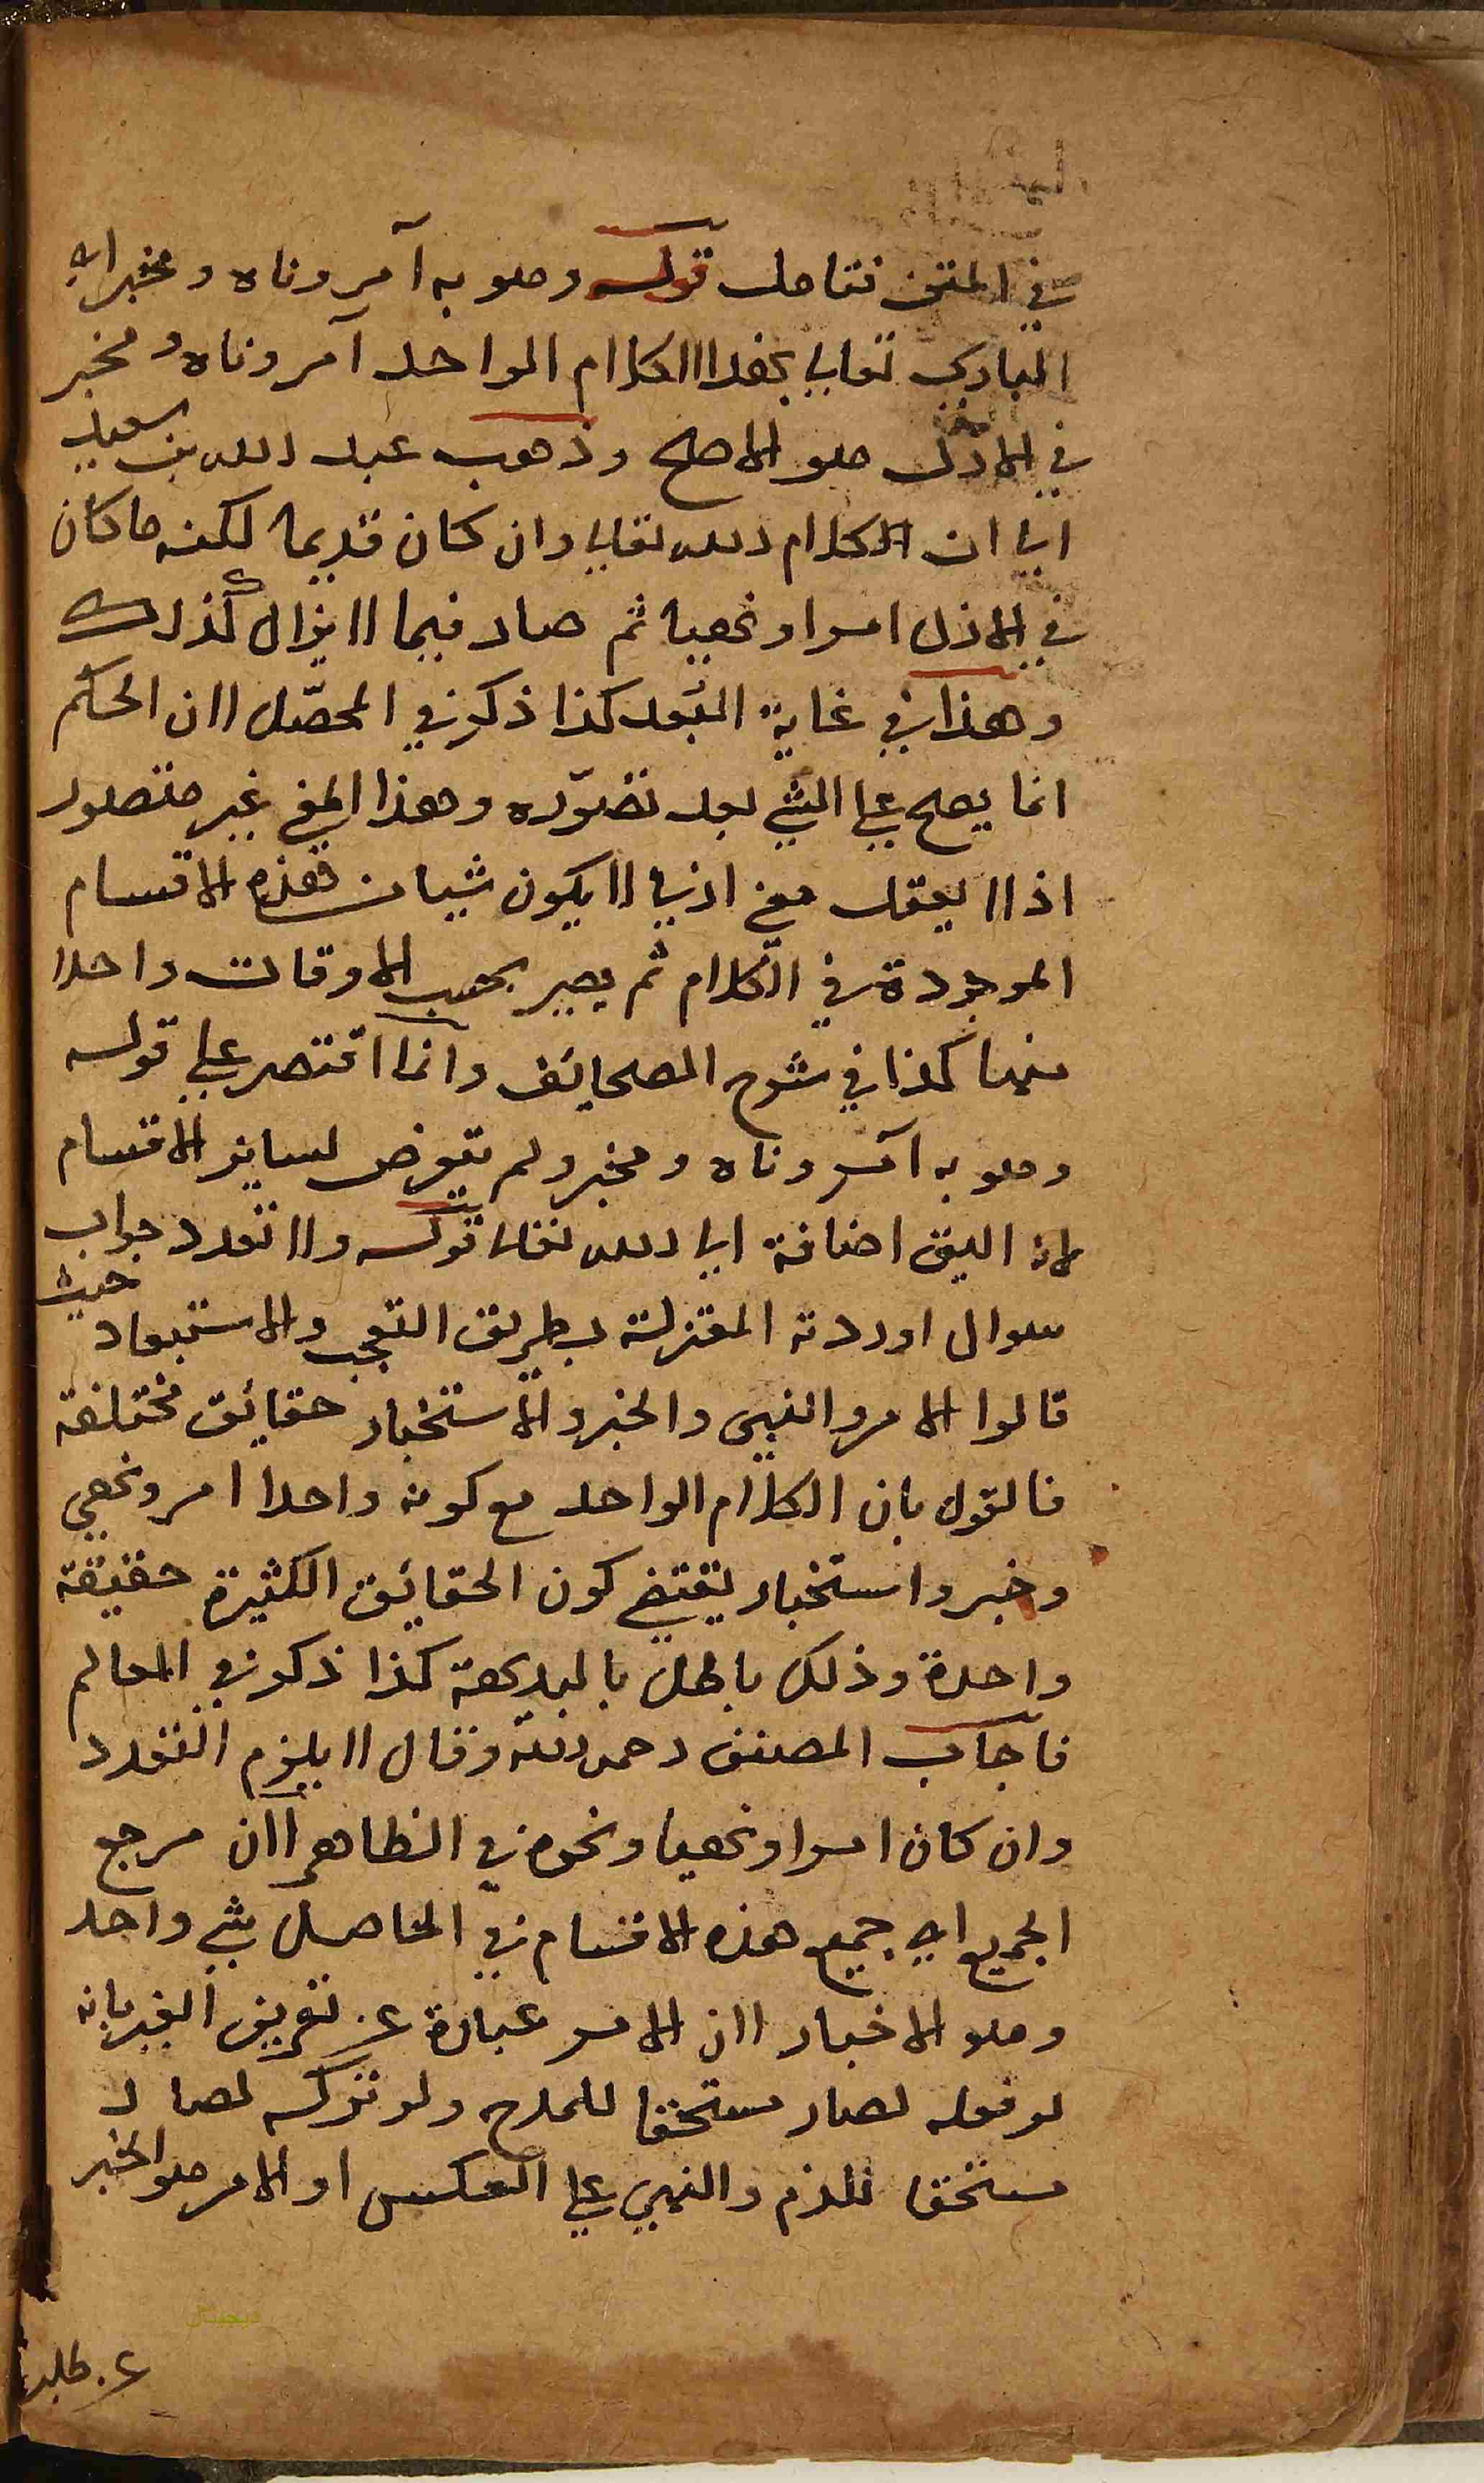 في المتن فتامل قوله وهو به آمر وناه ومخبر اي
الباري تعالى بهذا الكلام الواحد آمر وناه ومخبر
في الازل هو الاصح وذهب عبد الله بن سعيد
الى ان الكلام الله تعالى وان كان قديما لكنه ما كان
في الازل امرا ونهيا ثم صار فيما لا يزال كذلك
وهذا في غاية البُعد كذا ذكر في المحصّل لان الحكم
انما يصح على الشي بعد تصوّره وهذا المعنى غير متصور
اذ لا يعقل معنى ازلي لا يكون شيا من هذه الاقسام
الموجودة في الكلام ثم يصير بحسب الاوقات واحدا
منها كذا في شرح الصحائف وانما اقتصر على قوله
وهو به آمر وناه ومخبر ولم يتعرض لساير الاقسام
لانه اليق اضافة الى الله تعالى قوله ولا تعدد جواب
سوال اوردته المعتزلة بطريق التعجب والاستبعاد حيث
قالوا الامر والنهي والخبر والاستخبار حقائق مختلفة
فالقول بان الكلام الواحد مع كونه واحدا امر ونهي
وخبر واستخبار يقتضي كون الحقائق الكثيرة حقيقة
واحدة وذلك باطل بالبديهة كذا ذكر في المعالم
فاجاب المصنف رحمه الله وقال لا يلزم التعدد
وان كان امرا ونهيا ونحوه في الظاهر لان مرجع
الجميع اي جميع هذه الاقسام في الحاصل شي واحد
وهو الاخبار لان الامر عبارة عن تعريف الغير بانه
لو فعله لصار مستحقا للمدح ولو تركه لصار
مستحقا للذم والنهي على العكس او الامر هو الخبر
عن طلب